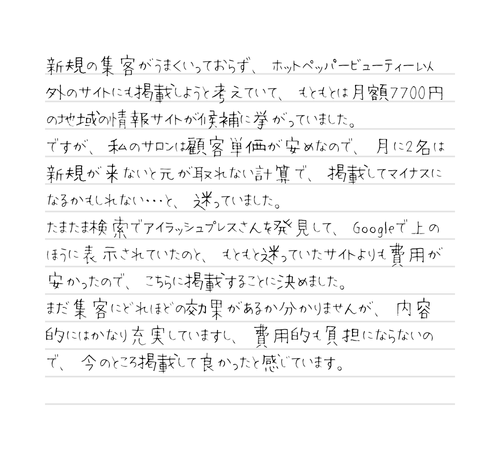 新規の集客がうまくいっておらず、ホットペッパービューティー以
外のサイトにも掲載しようと考えていて、もともとは月額7700円
の地域の情報サイトが候補に挙がっていました。
ですが、私のサロンは顧客単価が安めなので、月に2名は
新規が来ないと元が取れない計算で、掲載してマイナスに
なるかもしれない・・・と、迷っていました。
たまたま検索でアイラッシュプレスさんを発見して、Googleで上の
ほうに表示されていたのと、もともと迷っていたサイトよりも費用が
安かったので、こちらに掲載することに決めました。
まだ集客にどれほどの効果があるか分かりませんが、内容
的にはかなり充実していますし、費用的も負担にならないの
で、今のところ掲載して良かったと感じています。